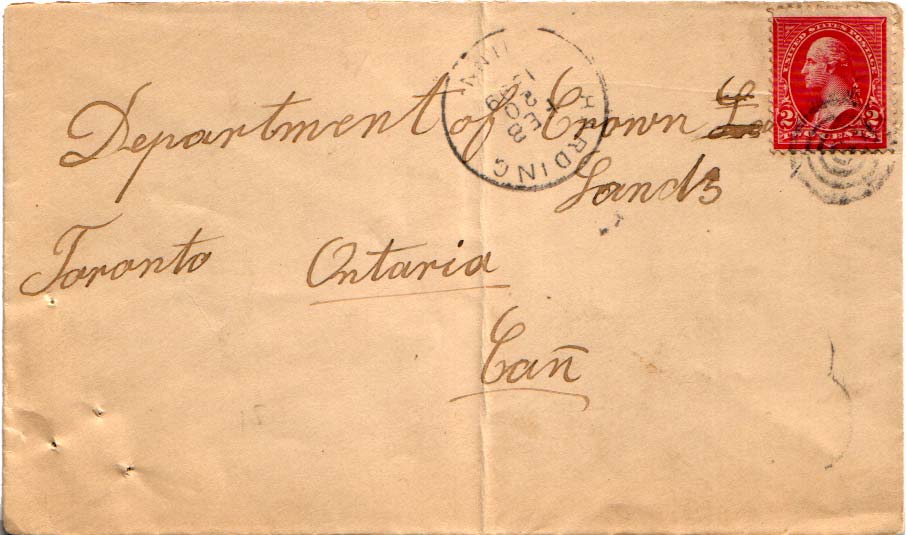 UNITED STATES POSTAGE
2 2
TWO CENTS
HARDING
MINN
FEB
20
Department of Crown
Lands
Toronto Ontario
Cañ